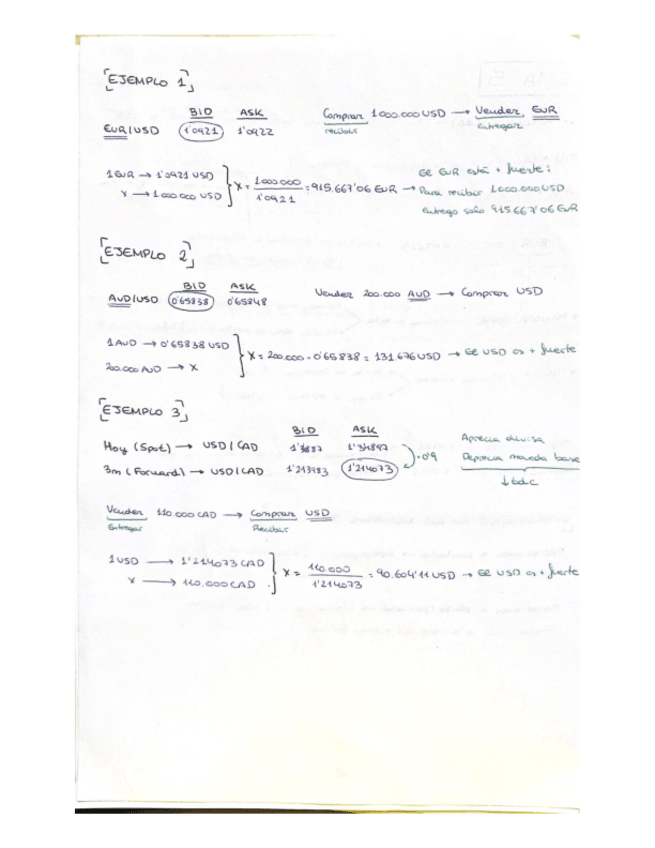 [EJEMPLO 1]
BID ASK
EUR/USD 1'0921 1'0922
Comprar 1000.000 USD → Vender EUR
recibir entregar
1 EUR → 1'0921 USD
X → 1000.000 USD
X = 1000.000 / 1'0921 = 915.667'06 EUR →
EE EUR está + fuerte:
Para recibir 1000.000 USD
entrego solo 915.667'06 EUR
[EJEMPLO 2]
BID ASK
AUD/USD 0'65838 0'65848
Vender 200.000 AUD → Comprar USD
1 AUD → 0'65838 USD
200.000 AUD → X
X = 200.000 · 0'65838 = 131.676 USD → EE USD es + fuerte
[EJEMPLO 3]
BID ASK
Hoy (Spot) → USD/CAD 1'34897
3m (Forward) → USD/CAD 1'213983 1'214073
·0'9
Aprecia divisa
Deprecia moneda base
↓ tdc
Vender 110.000 CAD → Comprar USD
Entregar Recibir
1 USD → 1'214073 CAD
X → 110.000 CAD
X = 110.000 / 1'214073 = 90.604'11 USD → EE USD es + fuerte